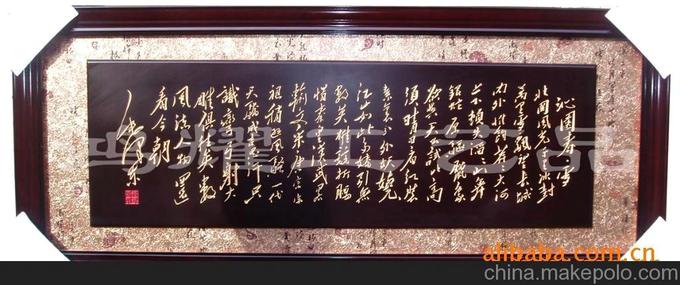 沁园春 雪
北国风光千里冰封
万里雪飘望长城
内外惟余莽莽大河
上下顿失滔滔山舞
银蛇原驰蜡象
欲与天公试比高
须晴日看红装
素裹分外妖娆
江山如此多娇引无
数英雄竞折腰
惜秦皇汉武略
输文采唐宗宋
祖稍逊风骚一代
天骄成吉思汗只
识弯弓射大
雕俱往矣数
风流人物还
看今朝
毛泽东
工艺品
alibaba.com.cn
china.makepolo.com